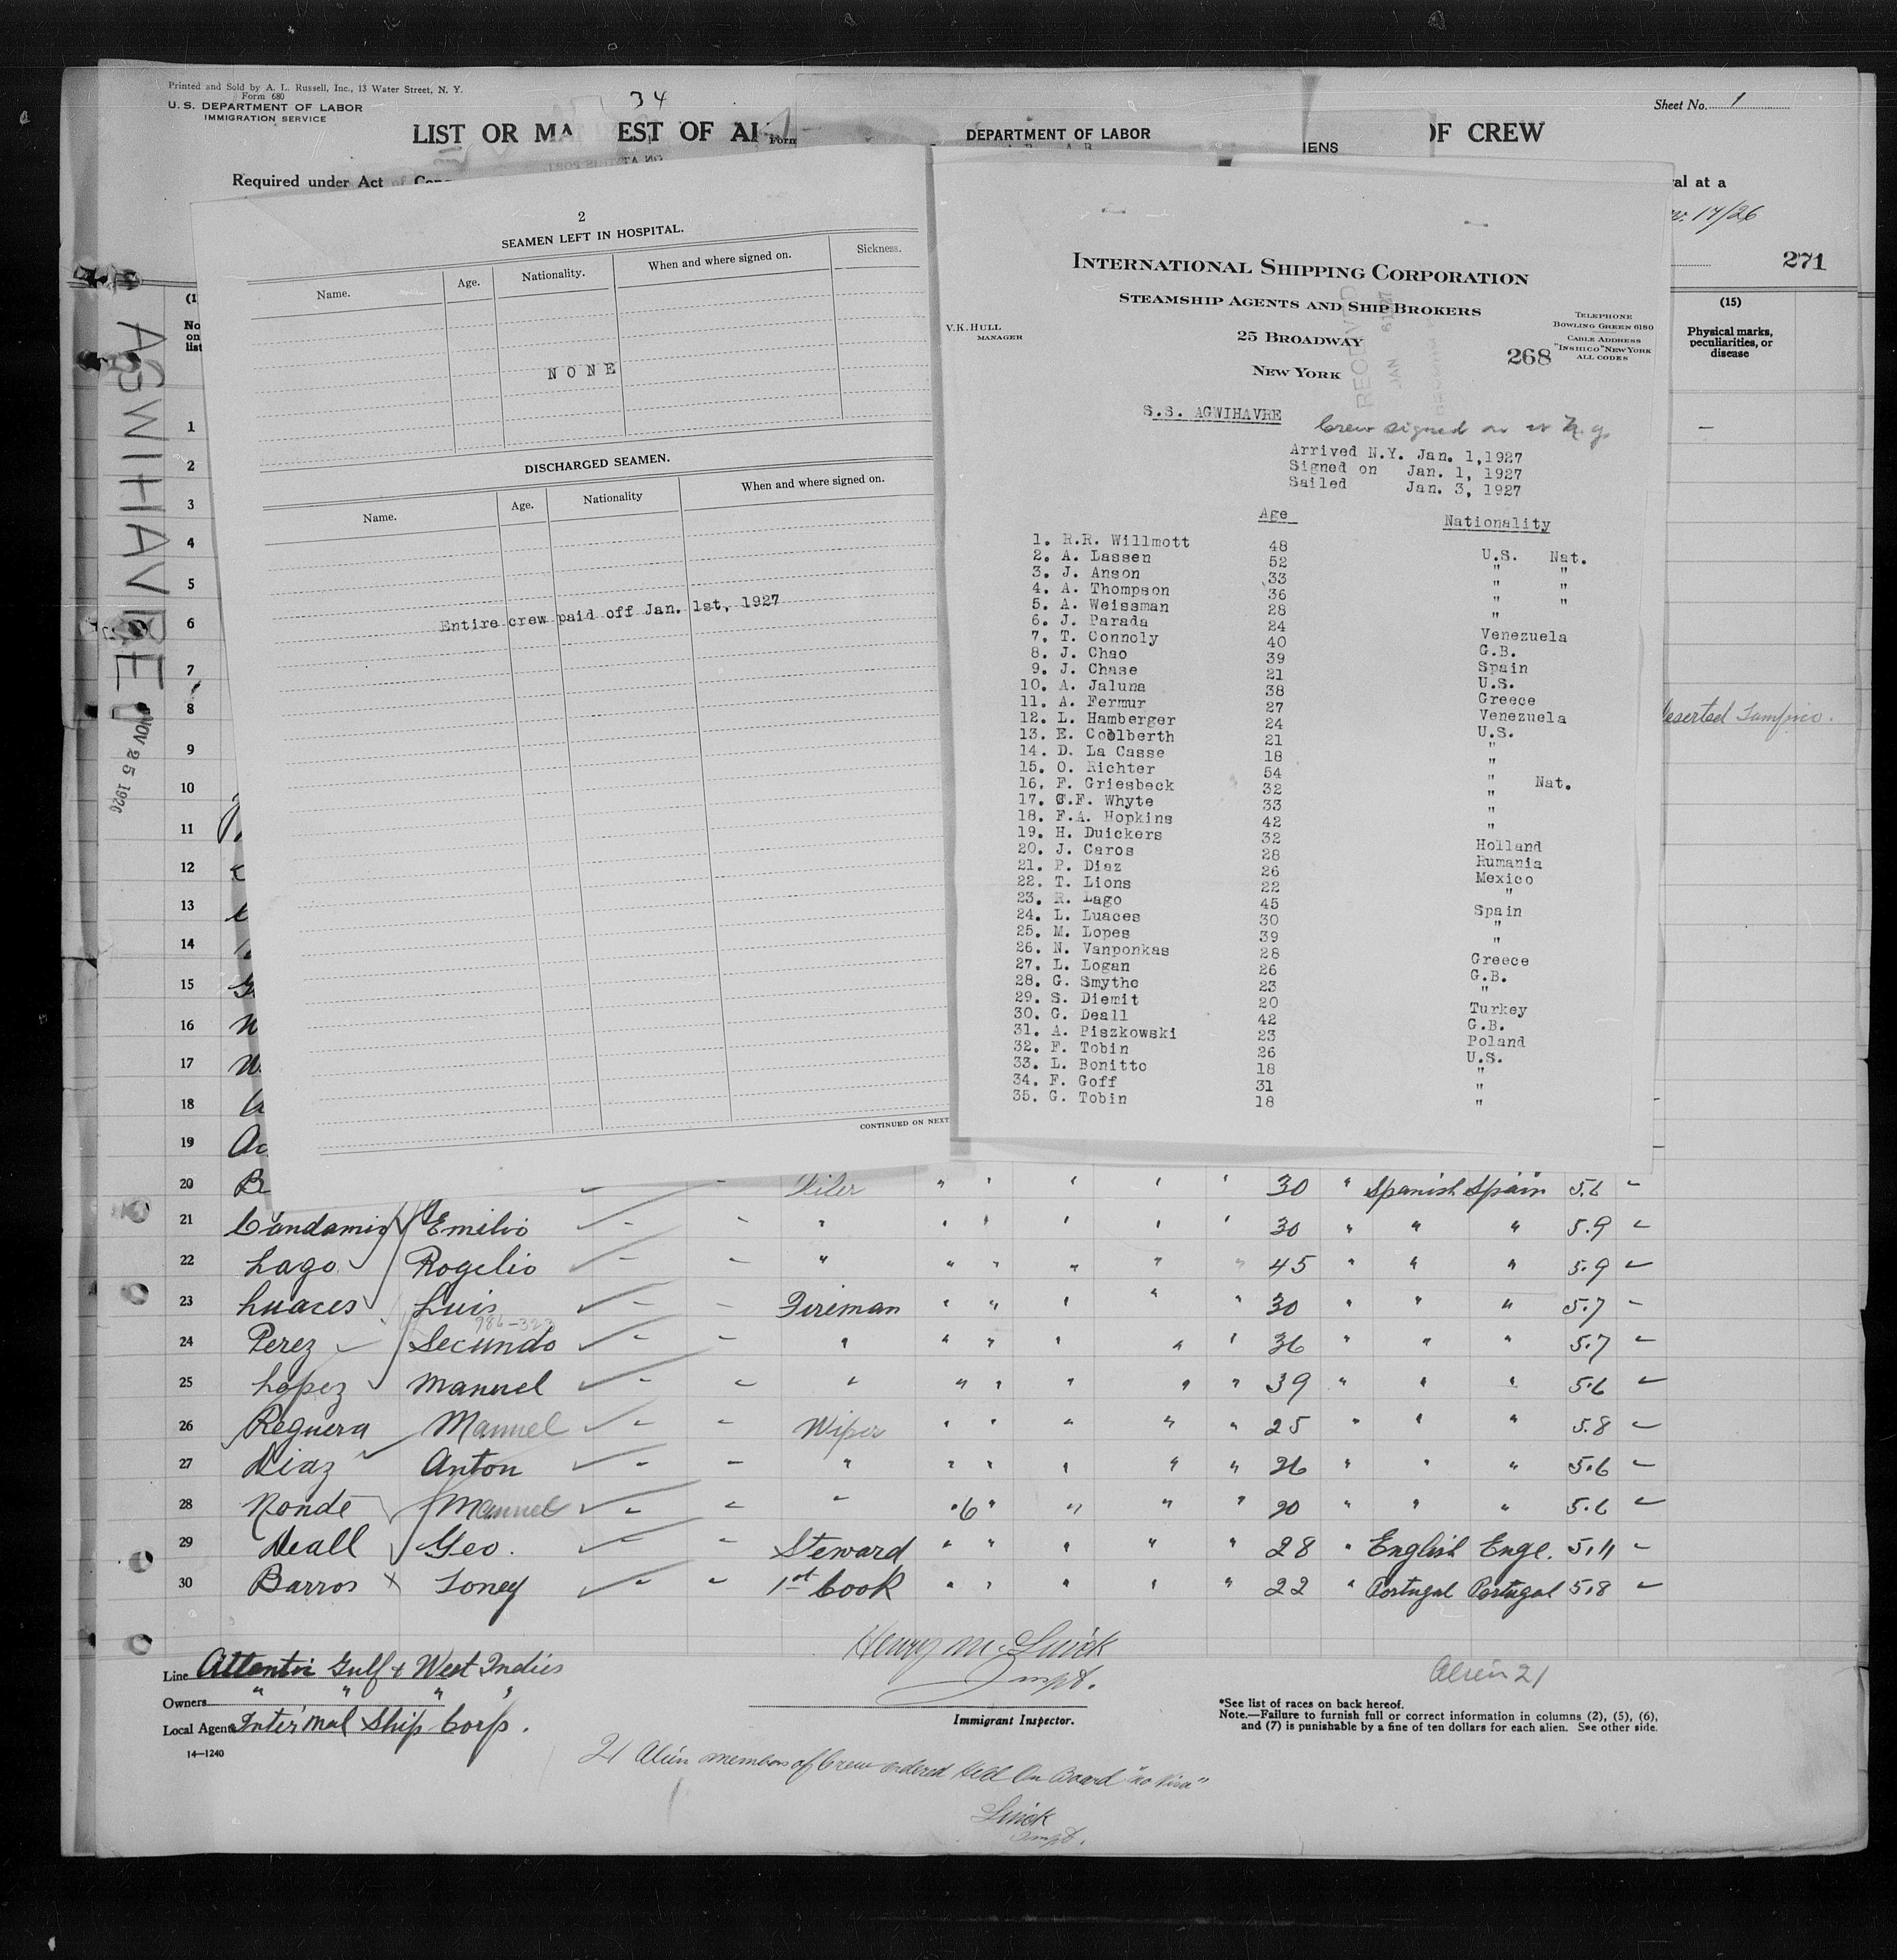 Printed and Sold by A. L. Russell, Inc., 13 Water Street, N. Y.
Form 680
U. S. DEPARTMENT OF LABOR
IMMIGRATION SERVICE
34
Sheet No. 1
LIST OR MA EST OF AL
Form
DEPARTMENT OF LABOR
IENS
OF CREW
Required under Act of Cong
val at a
17/26
271
AGWIHAVRE
NOV 25 1926
(1
No
on
list
(15)
Physical marks,
peculiarities, or
disease
2
SEAMEN LEFT IN HOSPITAL.
Name. Age. Nationality. When and where signed on. Sickness.
NONE
DISCHARGED SEAMEN.
Name. Age. Nationality When and where signed on.
Entire crew paid off Jan. 1st, 1927
CONTINUED ON NEXT
INTERNATIONAL SHIPPING CORPORATION
STEAMSHIP AGENTS AND SHIP BROKERS
V.K. HULL
MANAGER
25 BROADWAY
NEW YORK
TELEPHONE
BOWLING GREEN 6180
CABLE ADDRESS
"INSHICO" NEW YORK
ALL CODES
268
RECEIVED
JAN
S.S. AGWIHAVRE
Crew signed on at N.Y.
Arrived N.Y. Jan. 1,1927
Signed on Jan. 1, 1927
Sailed Jan. 3, 1927
Age Nationality
1. R.R. Willmott 48 U.S. Nat.
2. A. Lassen 52 " "
3. J. Anson 33 " "
4. A. Thompson 36 " "
5. A. Weissman 28 "
6. J. Parada 24 Venezuela
7. T. Connoly 40 G.B.
8. J. Chao 39 Spain
9. J. Chase 21 U.S.
10. A. Jaluna 38 Greece
11. A. Fermur 27 Venezuela
12. L. Hamberger 24 U.S.
13. E. Coolberth 21 "
14. D. La Casse 18 "
15. O. Richter 54 " Nat.
16. F. Griesbeck 32 "
17. G.F. Whyte 33 "
18. F.A. Hopkins 42 "
19. H. Duickers 32 Holland
20. J. Caros 28 Rumania
21. P. Diaz 26 Mexico
22. T. Lions 22 "
23. R. Lago 45 Spain
24. L. Luaces 30 "
25. M. Lopes 39 "
26. N. Vanponkas 28 Greece
27. L. Logan 26 G.B.
28. G. Smythe 23 "
29. S. Diemit 20 Turkey
30. G. Deall 42 G.B.
31. A. Piszkowski 23 Poland
32. F. Tobin 26 U.S.
33. L. Bonitto 18 "
34. F. Goff 31 "
35. G. Tobin 18 "
1
2
3
4
5
6
7
8 Deserted Tampico.
9
10
11
12
13
14
15
16
17
18
19
20 B Oiler " " " " " 30 " Spanish Spain 5.6 -
21 Candamio Emilio - - " " " " " " 30 " " " 5.9 -
22 Lago Rogelio - - " " " " " " 45 " " " 5.9 -
23 Luaces Luis - - Fireman " " " " " 30 " " " 5.7 -
986-323
24 Perez Secundo - - " " " " " " 36 " " " 5.7 -
25 Lopez Manuel - - " " " " " " 39 " " " 5.6 -
26 Reguera Manuel - - Wiper " " " " " 25 " " " 5.8 -
27 Diaz Anton - - " " " " " " 26 " " " 5.6 -
28 Monde Manuel - - " "6" " " " 20 " " " 5.6 -
29 Deall Geo. - - Steward " " " " " 28 " English Enge. 5.11 -
30 Barros x Toney - - 1st Cook " " " " " 22 " Portugal Portugal 5.8 -
Henry M. Linck
Inspt.
Immigrant Inspector.
Line Atlantic Gulf & West Indies
Owners " " " "
Local Agents Inter'nal Ship Corp.
14-1240
Alien 21
*See list of races on back hereof.
Note.—Failure to furnish full or correct information in columns (2), (5), (6),
and (7) is punishable by a fine of ten dollars for each alien. See other side.
21 Alien members of Crew ordered Held On Board "no Visa"
Linck
Inspt.